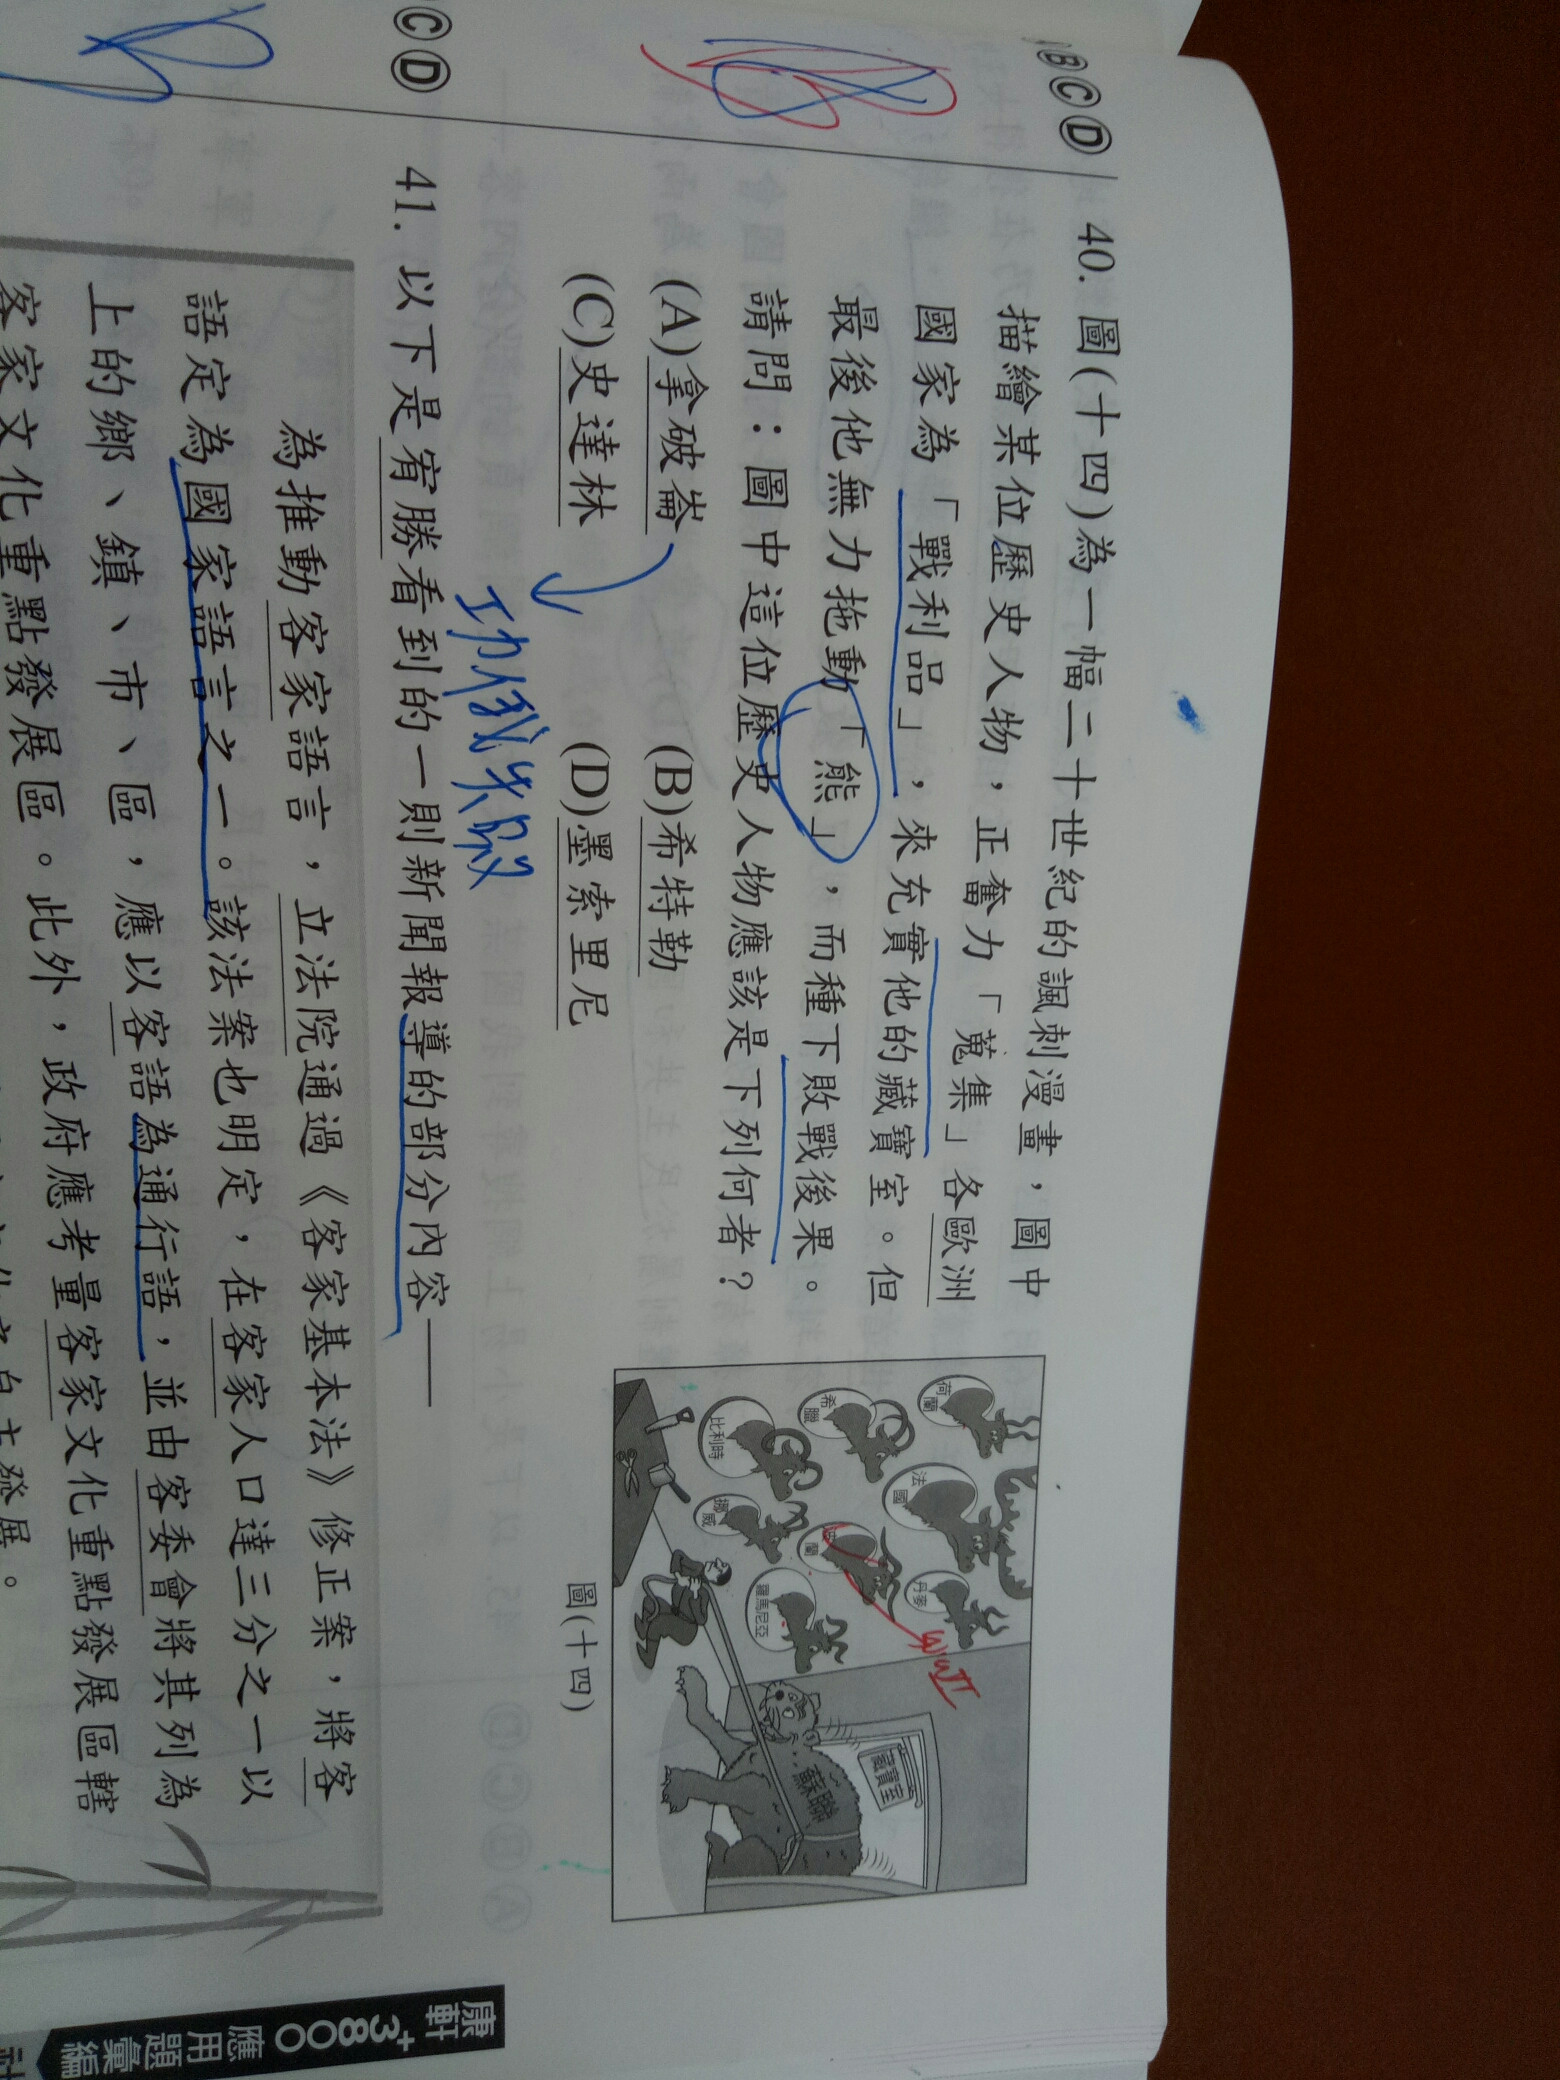 BCD
40. 圖(十四)為一幅二十世紀的諷刺漫畫，圖中
描繪某位歷史人物，正奮力「蒐集」各歐洲
國家為「戰利品」，來充實他的藏寶室。但
最後他無力拖動「熊」，而種下敗戰後果。
請問：圖中這位歷史人物應該是下列何者？
(A)拿破崙 (B)希特勒
(C)史達林 (D)墨索里尼
荷蘭
希臘
比利時
法國
挪威
蘭
丹麥
羅馬尼亞
WWII
藏寶室
蘇聯
圖(十四)
CD
41. 以下是宥勝看到的一則新聞報導的部分內容──
為推動客家語言，立法院通過《客家基本法》修正案，將客
語定為國家語言之一。該法案也明定，在客家人口達三分之一以
上的鄉、鎮、市、區，應以客語為通行語，並由客委會將其列為
客家文化重點發展區。此外，政府應考量客家文化重點發展區轄
康軒
+3800
應用題彙編
社